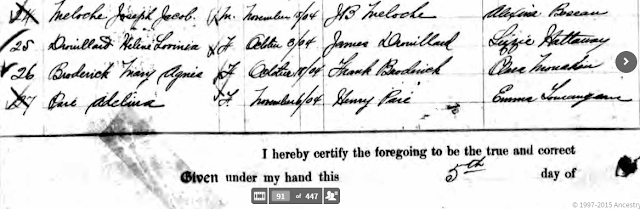 24 Meloche Joseph Jacob. m. November /04 J B Meloche
25 Drouillard Helene Lovinia F October 3/04 James Drouillard Lizzie Hattaway
26 Broderick Mary Agnes F October 18/04 Frank Broderick Clara
27 Paré Adelina F November 6/04 Henry Paré Emma
I hereby certify the foregoing to be the true and correct
Given under my hand this 5th day of
91 of 447
© 1997-2015 Ancestry